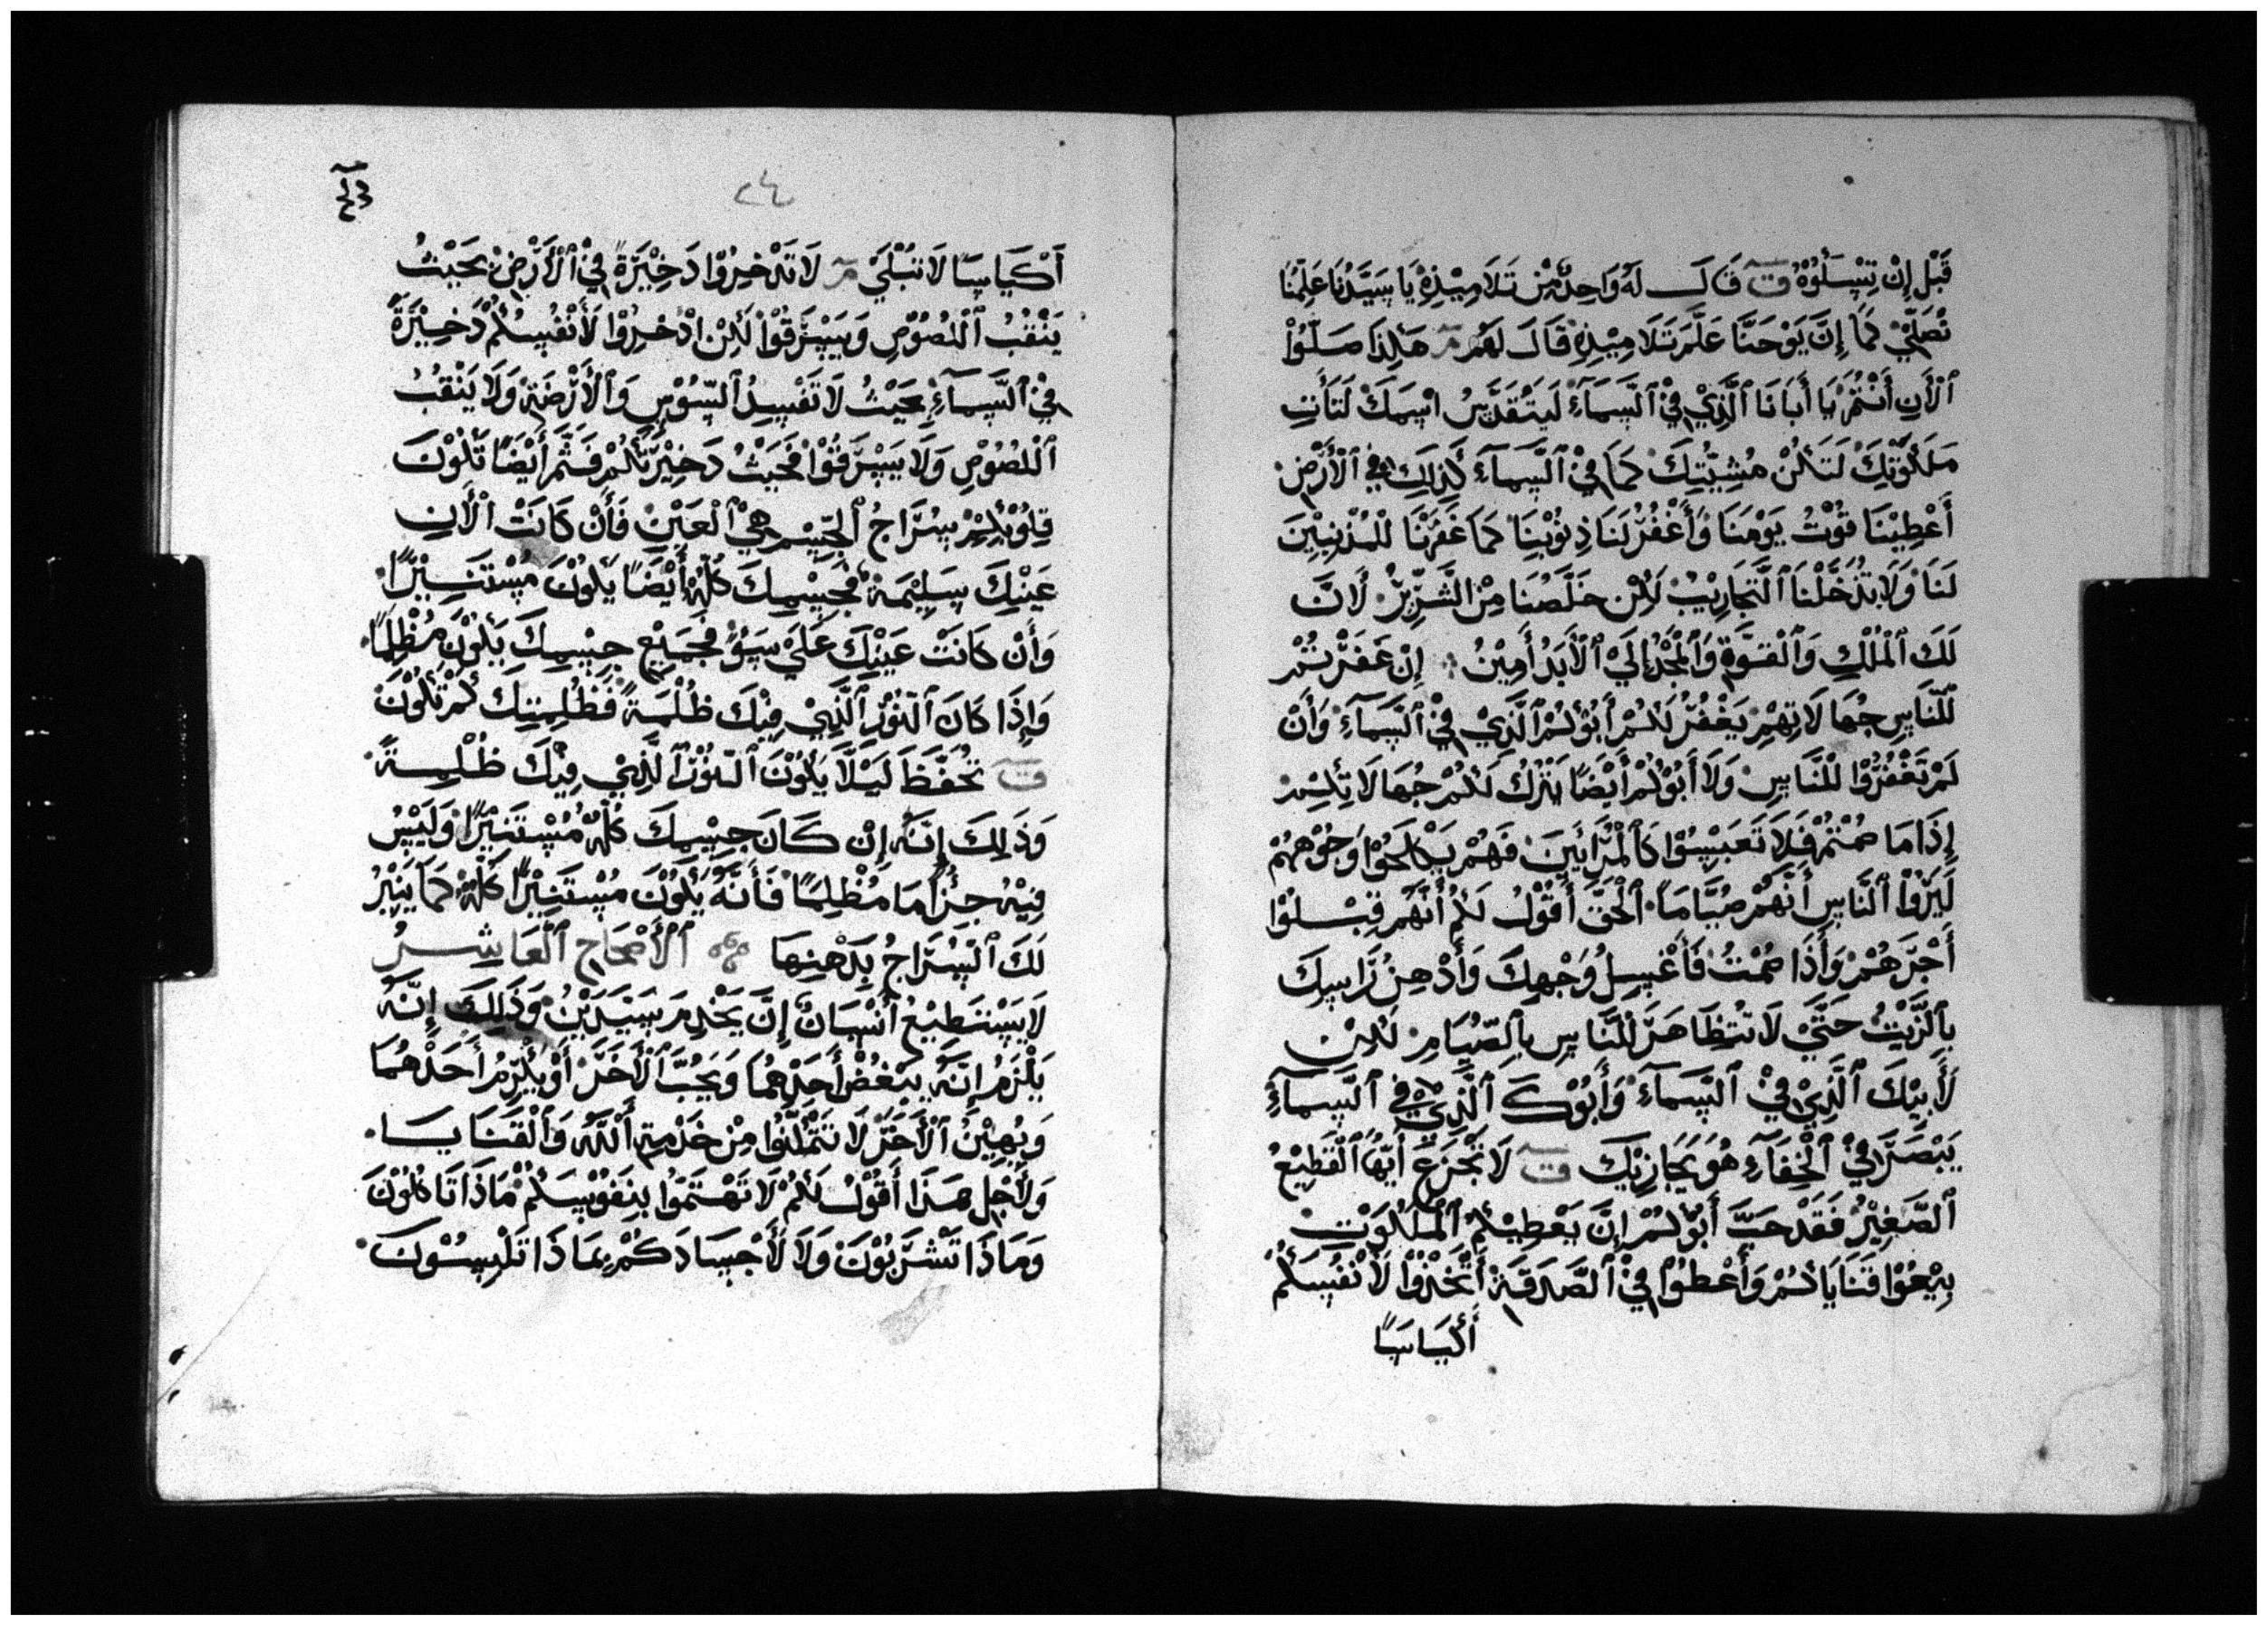 قَبْلِ إِنْ تِسْئَلُوْهُ قَالَ لَهُ وَاحِدٌ مِنْ تَلَامِيْذِهِ يَا سَيَّدْنَا عَلِّمْنَا
نْصَلِّيْ كَمَا إِنَّ يَوْحَنَّا عَلَّمَ تَلَامِيْذِهِ قَالَ لَهُمْ هَكِذَا صَلُّوْا
ٱلْأَنِ أَنْتُمْ يَا أَبَانَا ٱلَّذِيْ فِيْ ٱلسَّمَآءِ لَيَتَقَدَّسُ اسِمِكَ لَتَأْتِ
مَلَكُوْتِكَ لَتَكُنْ مَشِيّتِكَ كَمَا فِيْ ٱلسَّمَآءَ كَذَلِكَ فِي ٱلْأَرْضِ
أَعْطِيْنَا قُوْتُ يَوْمَنَا وَأَغْفُرْ لَنَا ذِنُوْبِنَا كَمَا غَفَرْنَا لْلمُذْنِبِيْنَ
لَنَا وَلَا تُدْخَّلْنَا ٱلتَّجَارِيْبْ لَكِنْ خَلَّصْنَا مِنْ الشَّرِّيْرْ لَانَّ
لَكَ ٱلْمُلْكِ وَٱلْقُوَّةِ وَٱلْمَجْدُ إِلَيْ ٱلْأَبَدْ أَمِيْنُ إِنْ غَفَرْتُمْ
لْلنَّاسِ جُهَالَاتِهِمْ يَغْفُرْ لَكُمْ أَبُوْكُمْ ٱلَّذِيْ فِيْ ٱلسَّمَآءِ وَأَنْ
لَمْ تَغْفُرُوْا لْلنَّاسِ وَلَا أَبُوْكُمْ أَيْضًا يَتْرُكُ لَكُمْ جُهَالَاتِكُمْ
إِذَا مَا صُمْتُمْ فَلَا تَعَبِسُوْا كَٱلْمُرَائِيِنَ فَهُمْ يَكَلِحُوْا وُجُوْهِهُمْ
لَيَرَوْا ٱلنَّاسِ أَنَّهُمْ صُيَّامَا ٱلْحَقَّ أَقُوْلُ لَكُمْ أَنَّهُمْ قِبْلُوْا
أَجْرَهُمْ وَأَذَا صُمْتُ فَأَغْسِلُ وَجْهِكَ وَأَدْهِنُ رَاسِكَ
بِٱلزَّيْتِ حَتَّيْ لَا تَتِظَاهَرَ لْلنَّاسِ بِٱلصِّيَامِ لَكِنْ
لَأَبِيْكَ ٱلَّذِيْ فِيْ ٱلسَّمَآءِ وَأَبُوْكَ ٱلَّذِيْ فِي ٱلسَّمَآءِ
يَبْصَرَ فِيْ ٱلْخِفَآءِ هُوَ يَجَازِيْكَ لَا تَجْزَعَ أَيُّهَا ٱلْقَطِيْعُ
ٱلصَّغِيْرُ فَقَدْ حَبَّ أَبُوْكُمْ إِنَّ يَعْطِيْكُمْ ٱلْمَلَكُوْتِ
بِيْعُوْا قَنَايَاكُمْ وَأَعْطُوْا فِيْ ٱلصَّدَقَةِ أَتَّخِذُوْا لَأَنْفُسِكُمْ
أَكْيَاسًا
٢٤
أَكْيَاسًا لَا تَبْلَيْ لَا تَدْخِرُوْا دَخِيْرَةً فِيْ ٱلْأَرْضِ بَحَيْثُ
يَنْقُبُ ٱللْصُوْصِ وَيَسِرَقُوْا لَكِنْ ادْخِرُوْا لَأَنْفُسِكُمْ دَخِيْرَةً
فِيْ ٱلسَّمَآءِ بَحَيْثُ لَا تَفْسِدُ ٱلسُّوْسِ وَٱلْأَرْضَةِ وَلَا يَنْقُبُ
ٱللْصُوْصِ وَلَا يَسِرَقُوْا فَحَيْثُ دَخِيْرَتُكُمْ فَثَمَّ أَيْضًا تَكُوْنَ
قِلُوْبِكِمْ سِرَّاجُ ٱلجِّسِمِ هِيْ ٱلْعَيْنِ فَأَنْ كَانَتْ ٱلْأَنِ
عَيْنِكَ سِلِيْمَةْ فَجَسِمِكَ كُلِّهُ أَيْضًا يَكُوْنَ مُسْتَنِيْرًا
وَأَنْ كَانَتْ عَيْنِكَ عَلَيْ سُوْءٍ فَجَمَيْعِ جِسِمِكَ يَكُوْنَ مُظْلِمًا
وَإِذَا كَانَ ٱلنُوْرْ ٱلَّذِيْ فِيْكَ ظُلْمَةً فَظُلِمِتِكَ كَمْ تَكُوْنَ
تَحُفَّظَ لَيَلَّا يَكُوْنَ ٱلنُوْرْ ٱلَّذِيْ فِيْكَ ظُلْمِةً
وَذَلِكَ إِنَّهُ إِنْ كَانَ جِسِمِكَ كُلِّهُ مُسْتَنِيْرًا وَلَيْسُ
فِيْهُ جِزْأً مَا مُظْلِمًا فَأَنَّهُ يَكُوْنَ مُسْتَنِيْرًا كُلِّهُ كَمَا يَنِيْرُ
لَكَ ٱلسِّرَاجُ بِدَهْنِهَا ٱلْأَصْحَاحِ ٱلْعَاشِرُ
لَا يَسْتَطِيْعُ أَنْسَانُ إِنَّ يَخْدِمَ سَيِّدَيْنُ وَذَلِكَ إِنَّهُ
يَلْزَمُ إِنَّهُ يَبْغُضْ أَحَدْهُمَا وَيَحُبَّ ٱلْأَخَرَ أَوْ يَكْرِّمُ أَحَدْهُمَا
وَيُهِيْنُ ٱلْأَخَرْ لَا تَتَمَّكِنُوْا مِنْ خَدْمِةِ أَللَّهُ وَٱلْقَنَايَا
وَلَأَجْلِ هَذَا أَقُوْلُ لَكُمْ لَا تَهْتَمُوْا بِنِفُوْسِكُمْ مَاذَا تَاكُلُوْنَ
وَمَاذَا تَشْرَبُوْنَ وَلَا لَأَجْسَادَكُمْ بِمَاذَا تَلْبِسُوْنَ